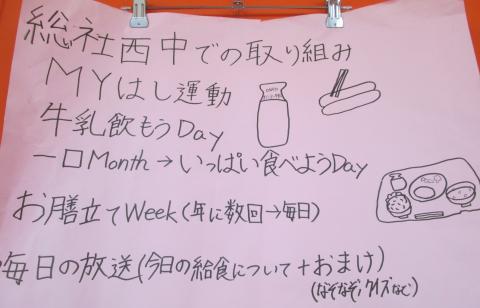 総社西中での取り組み
MYはし運動
牛乳飲もうDay
一口Month→いっぱい食べようDay
お膳立てWeek(年に数回→毎日)
毎日の放送(今日の給食について+おまけ)
(なぞなぞ,クイズなど)